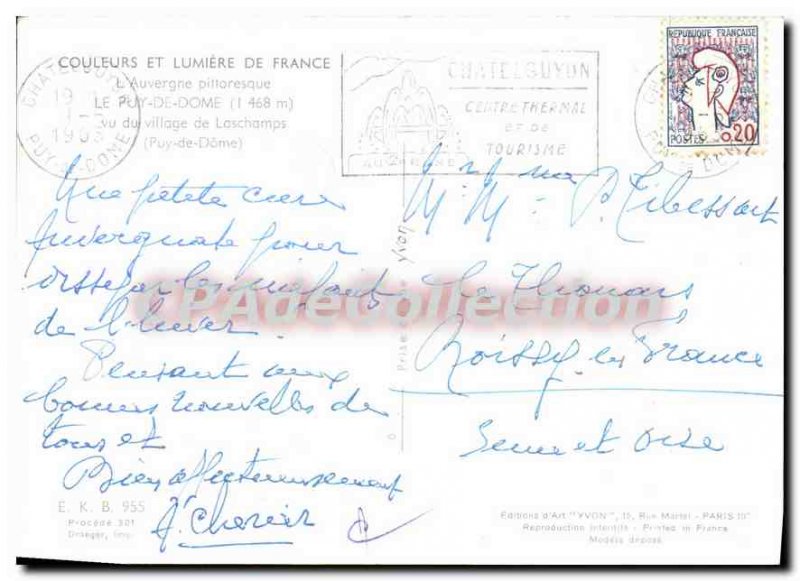 COULEURS ET LUMIÈRE DE FRANCE
L'Auvergne pittoresque
LE PUY-DE-DOME (1 468 m)
vu du village de Laschamps
(Puy-de-Dôme)
CHATELGUYON
PUY-DE-DOME
CHATELGUYON
CENTRE THERMAL
ET DE
TOURISME
AUVERGNE
REPUBLIQUE FRANÇAISE
POSTES
0,20
Une petite cure
Auvergnate pour
dissiper les méfaits
de l'hiver.
Pensant aux
bonnes nouvelles de
tous et
Bien affectueusement
Mr Mme P. Tibessart
Le Thouars
Roissy en France
Seine et Oise
CPAdeCollection
yvon
E. K. B. 955
Procédé 301
Draeger, imp.
Editions d'Art "YVON", 15, Rue Martel - PARIS 10e
Reproduction interdite - Printed in France
Modèle déposé